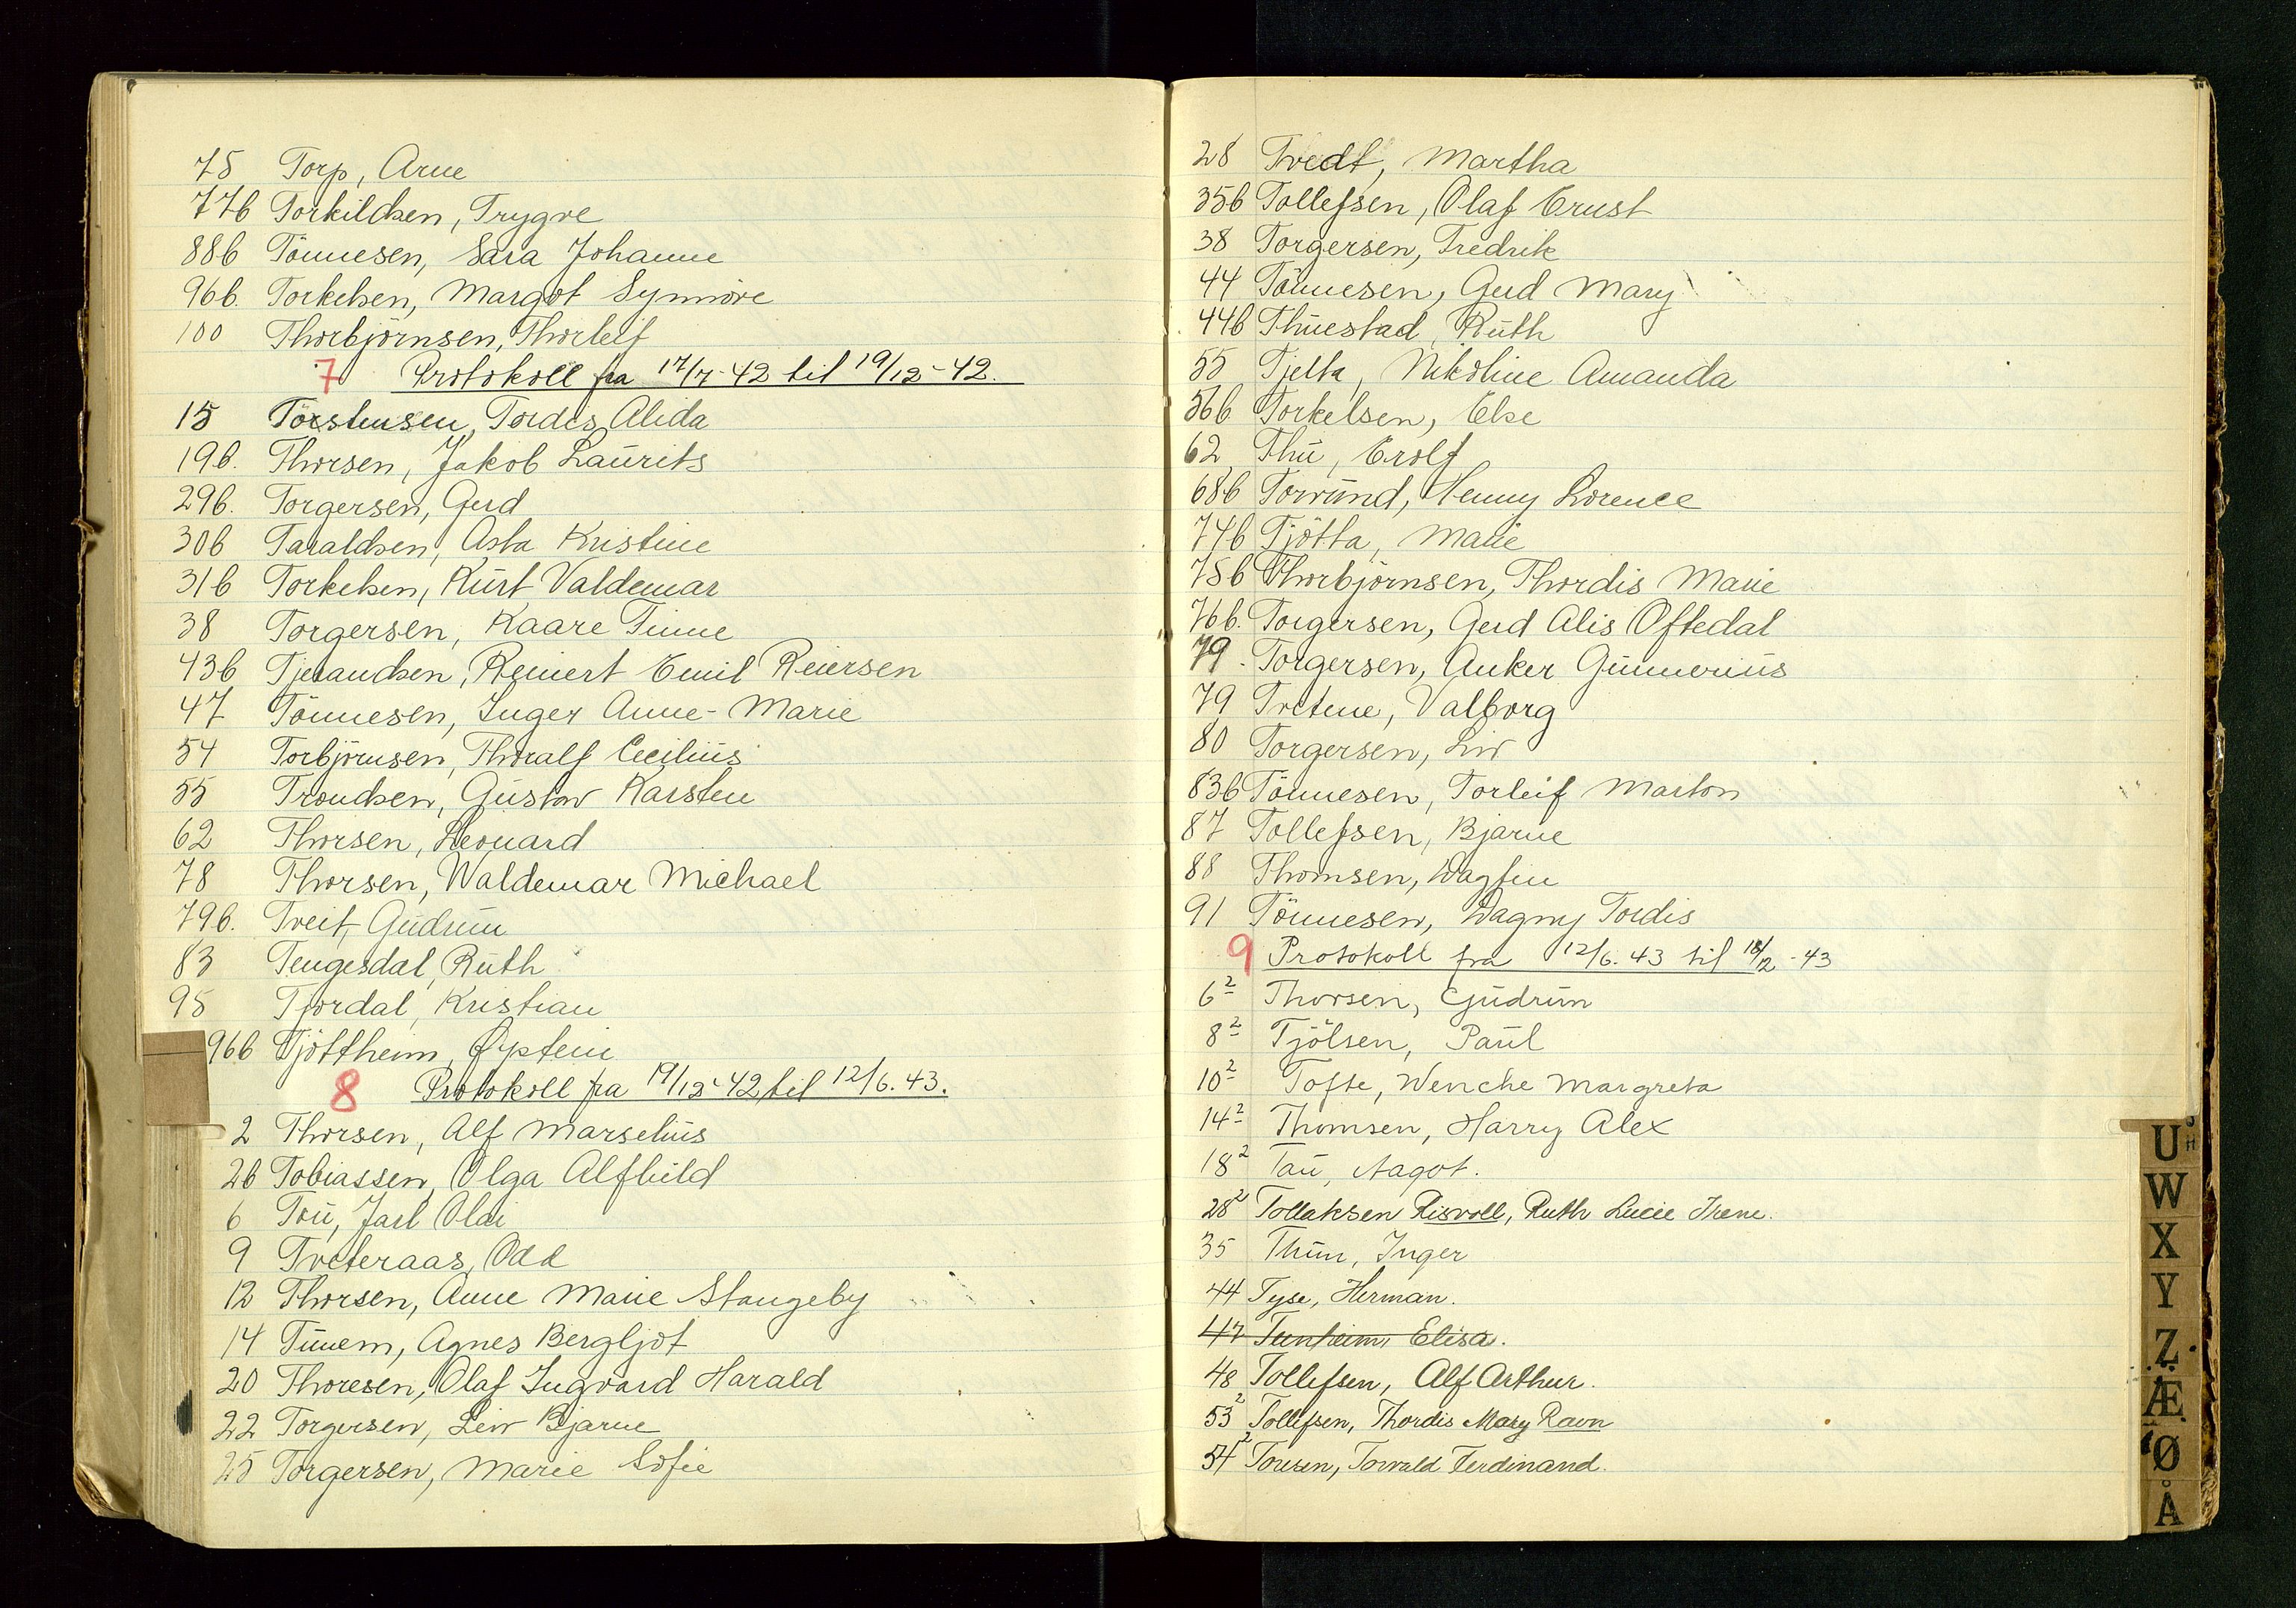 75 Torp, Arne
77b Torkildsen, Trygve
88b Tönnesen, Sara Johanne
96b. Torkelsen, Margot Synnöve
100 Thorbjörnsen, Thorleif
7 Protokoll fra 17/7-42 til 19/12-42.
15 Torstensen, Tordis Alida
19b. Thorsen, Jakob Laurits
29b. Torgersen, Gerd
30b Taraldsen, Asta Kristine
31b Torkelsen, Kurt Valdemar
38 Torgersen, Kaare Finne
43b Tjerandsen, Reinert Emil Reiersen
47 Tönnesen, Inger Anne-Marie
54 Torbjörnsen, Thoralf Cecilius
55 Trondsen, Gustav Karsten
62 Thorsen, Leonard
78 Thorsen, Waldemar Michael
79b. Tveit, Gudrun
83 Tengesdal, Ruth
95 Tjordal, Kristian
96b Tjöttheim, Öystein
8 Protokoll fra 19/12-42 til 12/6.43.
2 Thorsen, Alf Marselius
2b Tobiassen, Olga Alfhild
6 Tou, Jarl Olai
9 Tveteraas, Odd
12 Thorsen, Anne Marie Stangeby
14 Tunem, Agnes Bergljot
20 Thoresen, Olaf Ingvard Harald
22 Torgersen, Leiv Bjarne
25 Torgersen, Marie Sofie
28 Tvedt, Martha
35b Tollefsen, Olaf Ernst
38 Torgersen, Fredrik
44 Tönnesen, Gerd Mary
44b Thuestad, Ruth
55 Tjelta, Nikoline Amanda
56b Torkelsen, Else
62 Thu, Erolf
68b Torvund, Henny Lorence
74b Tjötta, Marie
75b Thorbjörnsen, Thordis Marie
76b. Torgersen, Gerd Alis Oftedal
79. Torgersen, Anker Gunnerius
79 Tvetene, Valborg
80 Torgersen, Liv
83b Tönnesen, Torleif Marton
87 Tollefsen, Bjarne
88 Thomsen, Dagfin
91 Tönnesen, Dagny Tordis
9 Protokoll fra 12/6.43 til 18/12-43
6² Thorsen, Gudrun
8² Tjölsen, Paul
10² Tofte, Wenche Margreta
14² Thomsen, Harry Alex
18² Tau, Aagot.
28² Tollaksen Risvoll, Ruth Lucie Irene.
35 Thun, Inger
44 Tyse, Herman.
47 Tunheim, Elisa.
48 Tollefsen, Alf Arthur.
53² Tollefsen, Thordis Mary Ravn
54² Toresen, Torvald Ferdinand.
U
W
X
Y
Z
Æ
Ø
Å